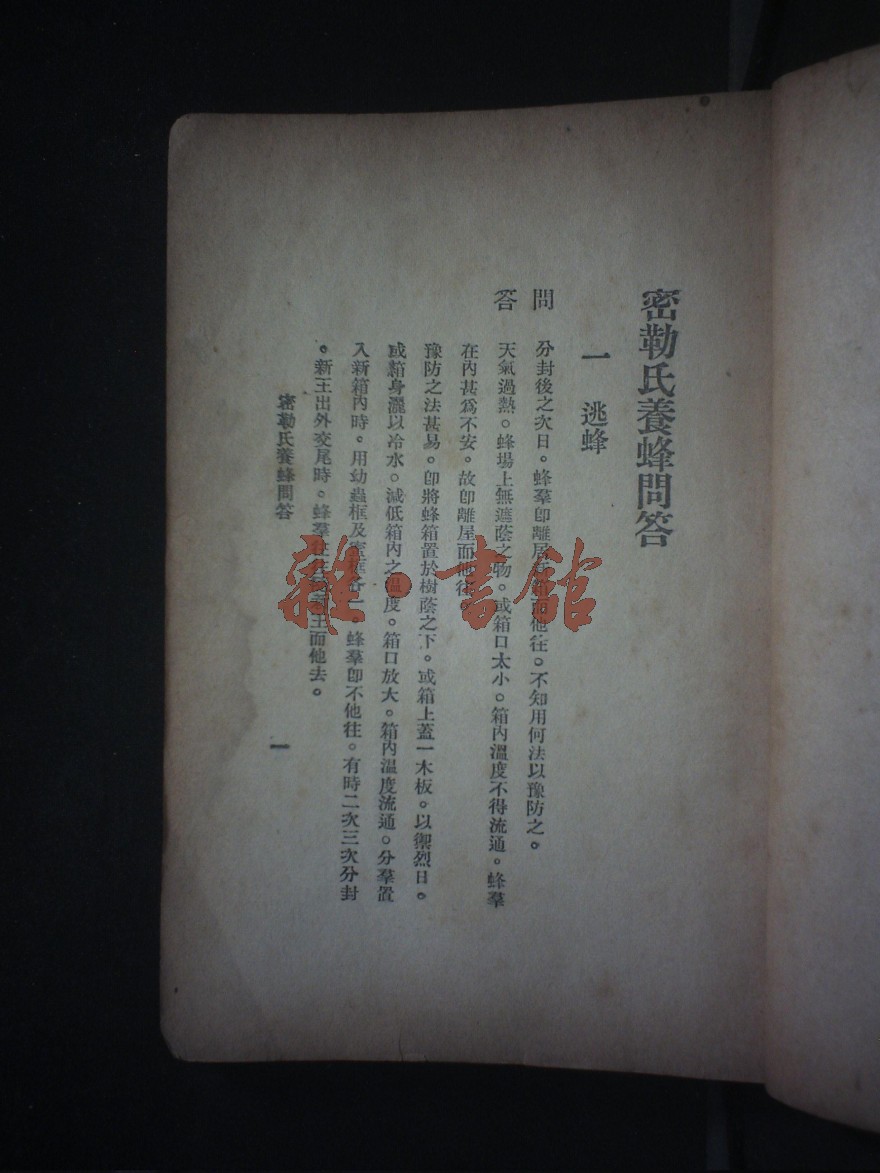 密勒氏養蜂問答
一　逃蜂
問　分封後之次日。蜂羣卽離居新箱而他往。不知用何法以豫防之。
答　天氣過熱。蜂場上無遮蔭之物。或箱口太小。箱內溫度不得流通。蜂羣
在內甚爲不安。故卽離屋而他往。
豫防之法甚易。卽將蜂箱置於樹蔭之下。或箱上蓋一木板。以禦烈日。
或箱身灑以冷水。減低箱內之溫度。箱口放大。箱內溫度流通。分羣置
入新箱內時。用幼蟲框及蜜框各一。蜂羣卽不他往。有時二次三次分封
。新王出外交尾時。蜂羣往往新王而他去。
密勒氏養蜂問答
一
雜·書館